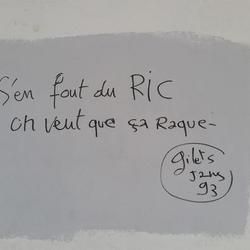 S'en fout du RIC
on veut que ça Raque-
gilets
Jaunes
93